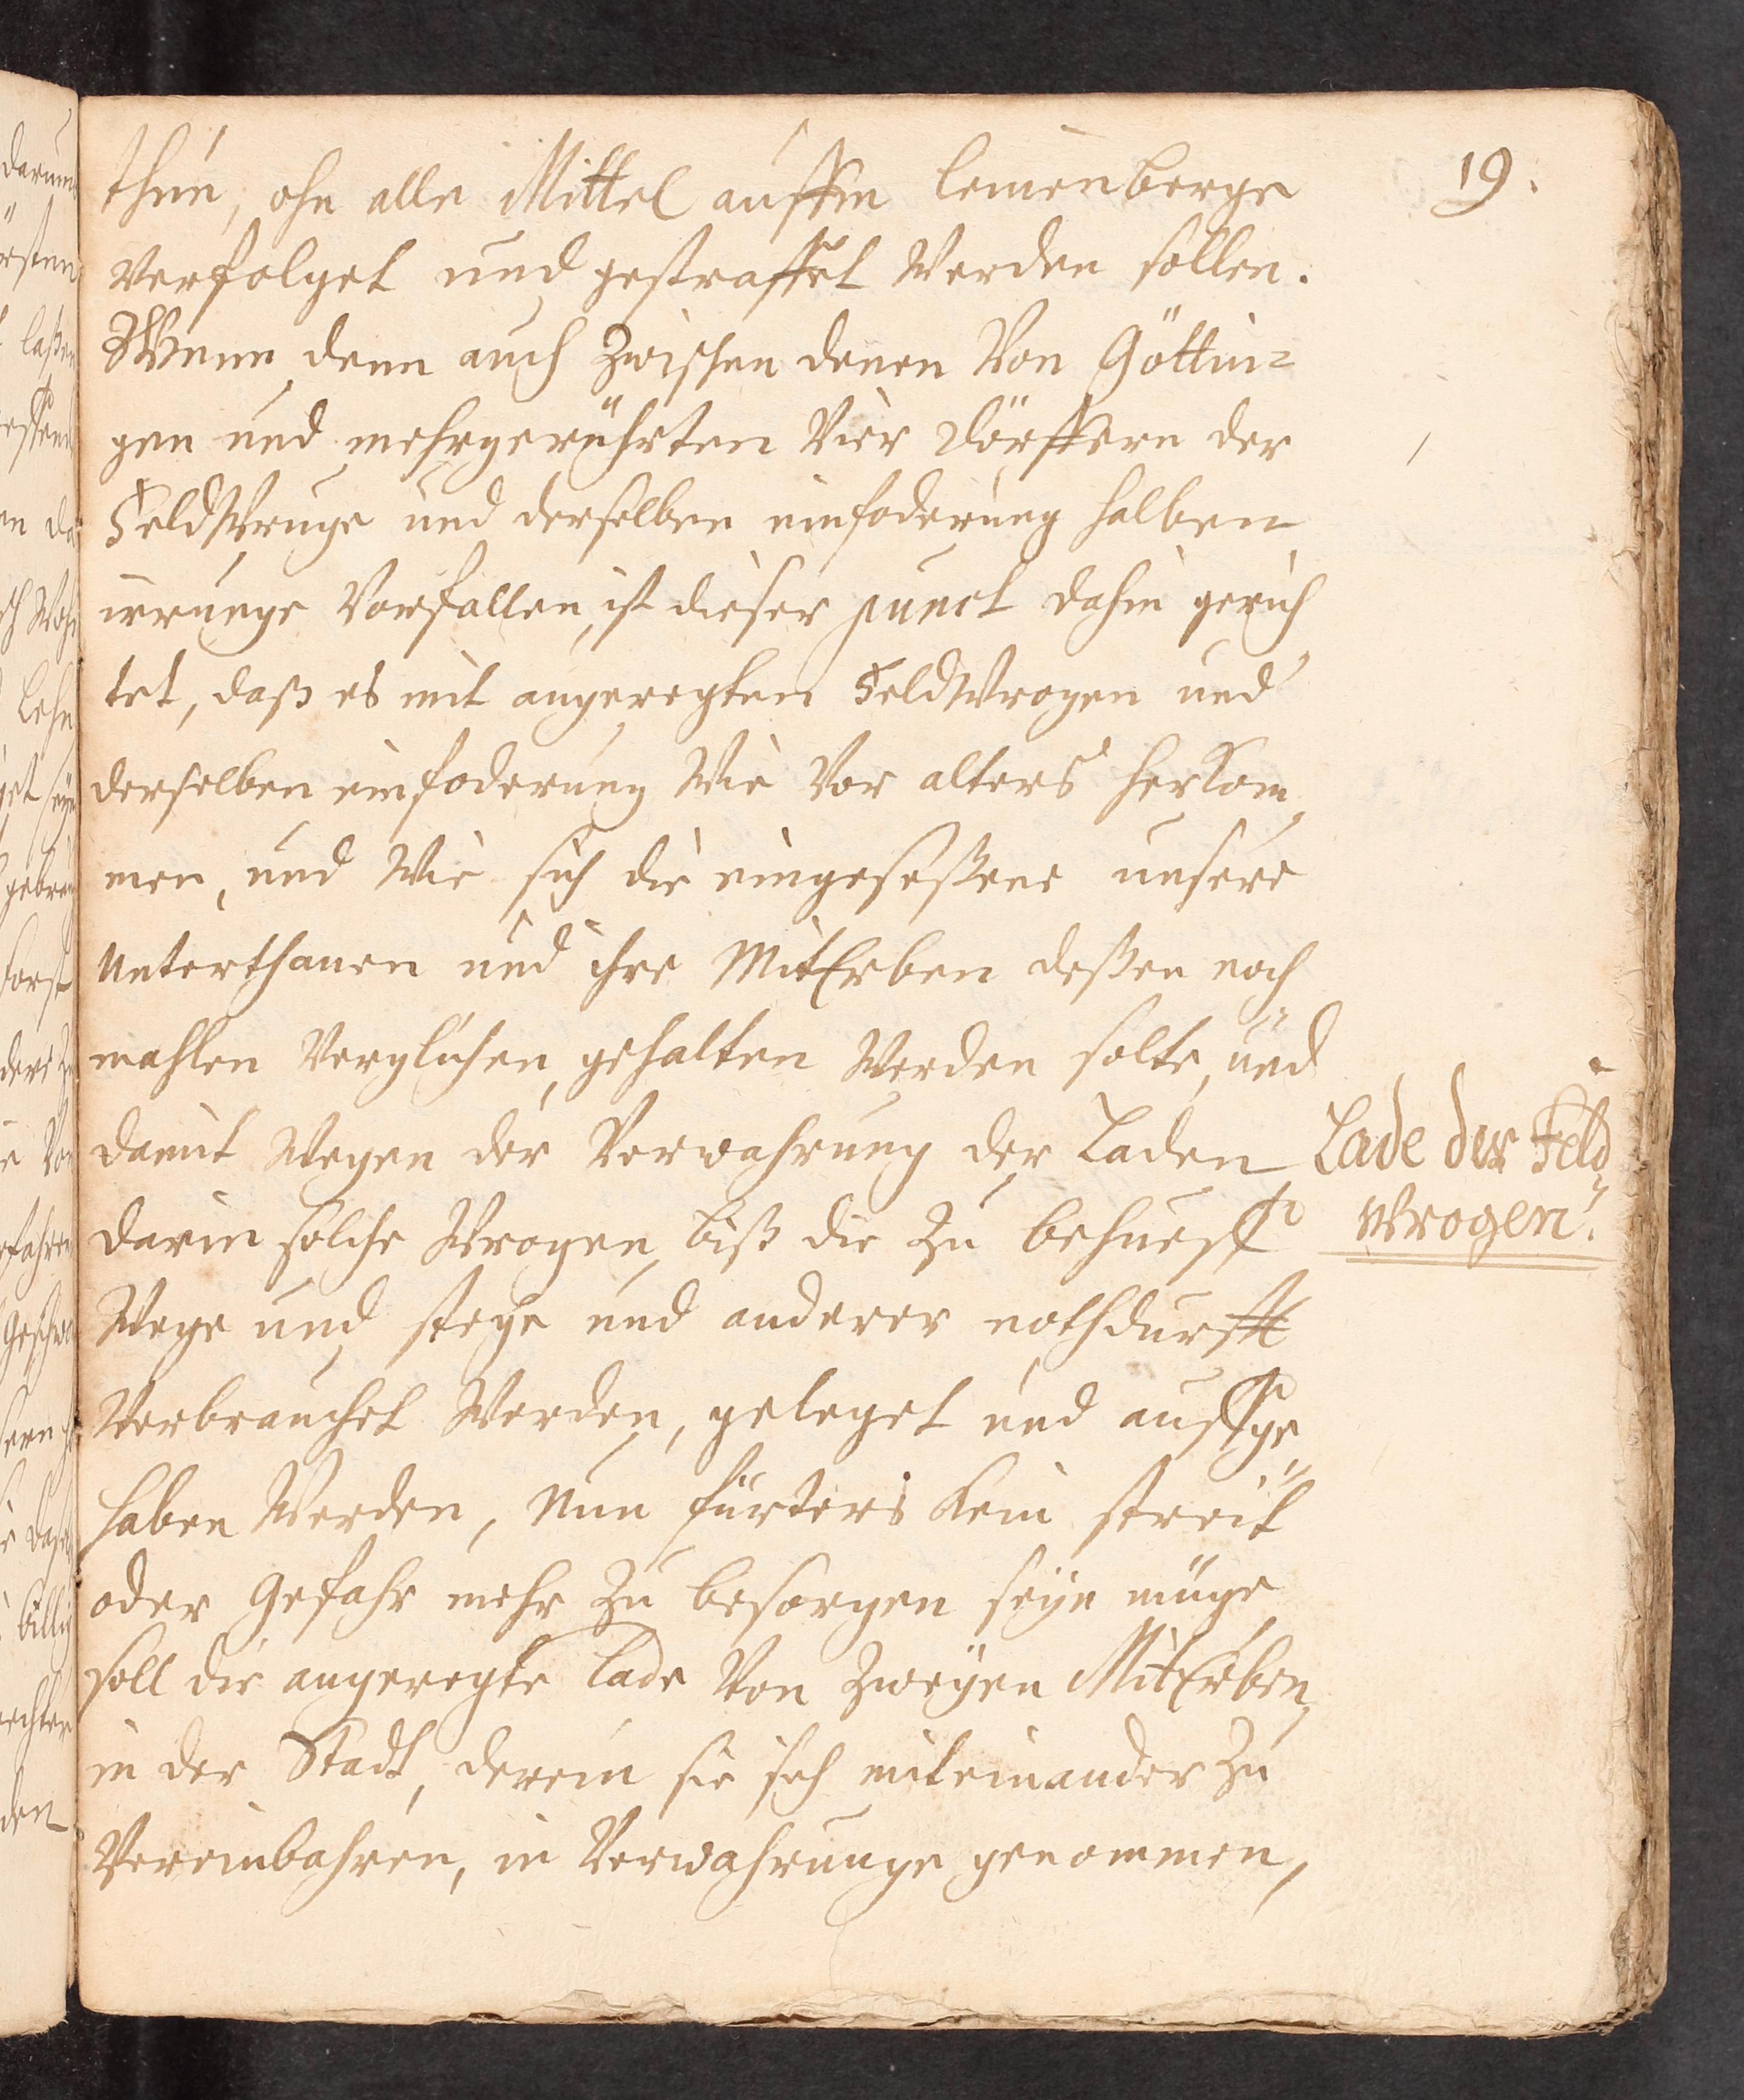 19.
thun, ohn alle Mittel auffm leinenberge
Verfolget und gestraffet Werden sollen.
Wenn denn auch Zwischen denen Von Göttin=
gen und mehrgerührten Vier Dörffern der
FeldWruge und derselben einfoderung halben
irrunge Vorfallen, ist dieser punct dahin gerich
tet, daß es mit angeregten FeldWrogen und
derselben einfoderung Wie Vor alters herkom,
men, und Wie sich die eingeseßene unsere
Unterthanen und ihre MitErben deßen noch
mahlen Verglichen, gehalten Werden solte, und
damit Wegen der Verwahrung der Laden
darin solche Wrogen, biß die Zu behueff
Wege und stege und anderer nothdurfft
Verbrauchet Werden, geleget und auffge,,
haben Werden, Nun fürters kein streit
oder Gefahr mehr Zu besorgen seyn müge
soll die angeregte Lade Von Zweyen MitErben,
in der Stadt, derein sie sich miteinander Zu
Vereinbahren, in Verwahrunge genommen,
Lade der Feld,,
Wrogen.